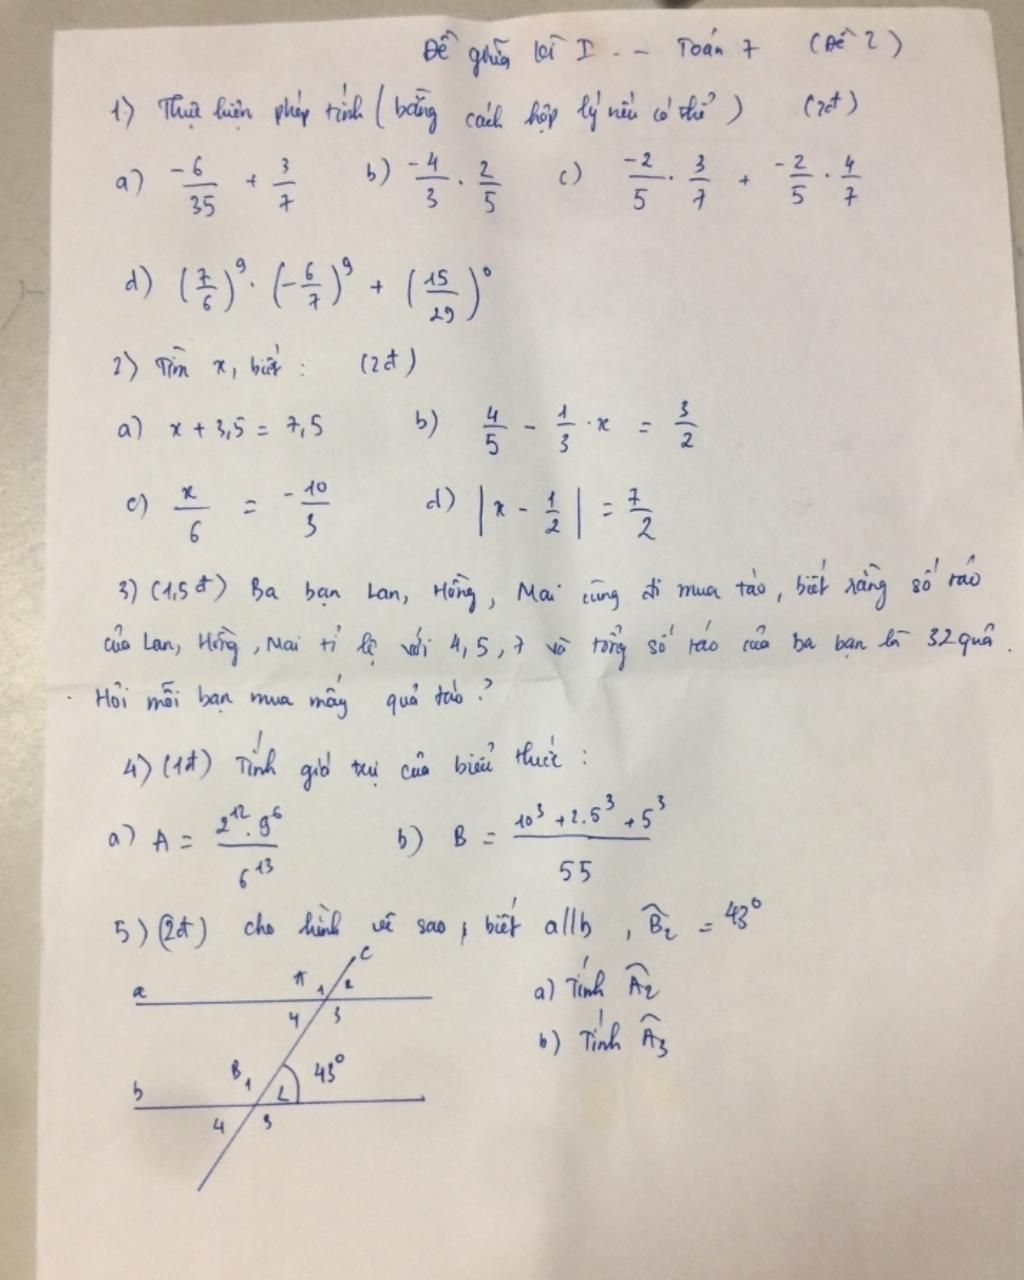 Đề giữa kì I - - Toán 7 (Đề 2)
1) Thực hiện phép tính (bằng cách hợp lý nếu có thể) (2đ)
a) -6/35 + 3/7 b) -4/3 . 2/5 c) -2/5 . 3/7 + -2/5 . 4/7
d) (7/6)^9 . (-6/7)^9 + (15/29)^0
2) Tìm x, biết : (2đ)
a) x + 3,5 = 7,5 b) 4/5 - 1/3 . x = 3/2
c) x/6 = -10/3 d) |x - 1/2| = 7/2
3) (1,5đ) Ba bạn Lan, Hồng, Mai cùng đi mua táo, biết rằng số táo
của Lan, Hồng, Mai tỉ lệ với 4, 5, 7 và tổng số táo của ba bạn là 32 quả.
Hỏi mỗi bạn mua mấy quả táo?
4) (1đ) Tính giá trị của biểu thức :
a) A = 2^12 . 9^6 / 6^13 b) B = 10^3 + 2.5^3 + 5^3 / 55
5) (2đ) cho hình vẽ sao, biết a//b, B̂2 = 43°
c
A 1 2
a
4 3
a) Tính Â2
b) Tính Â3
B 1 2 43°
b
4 3